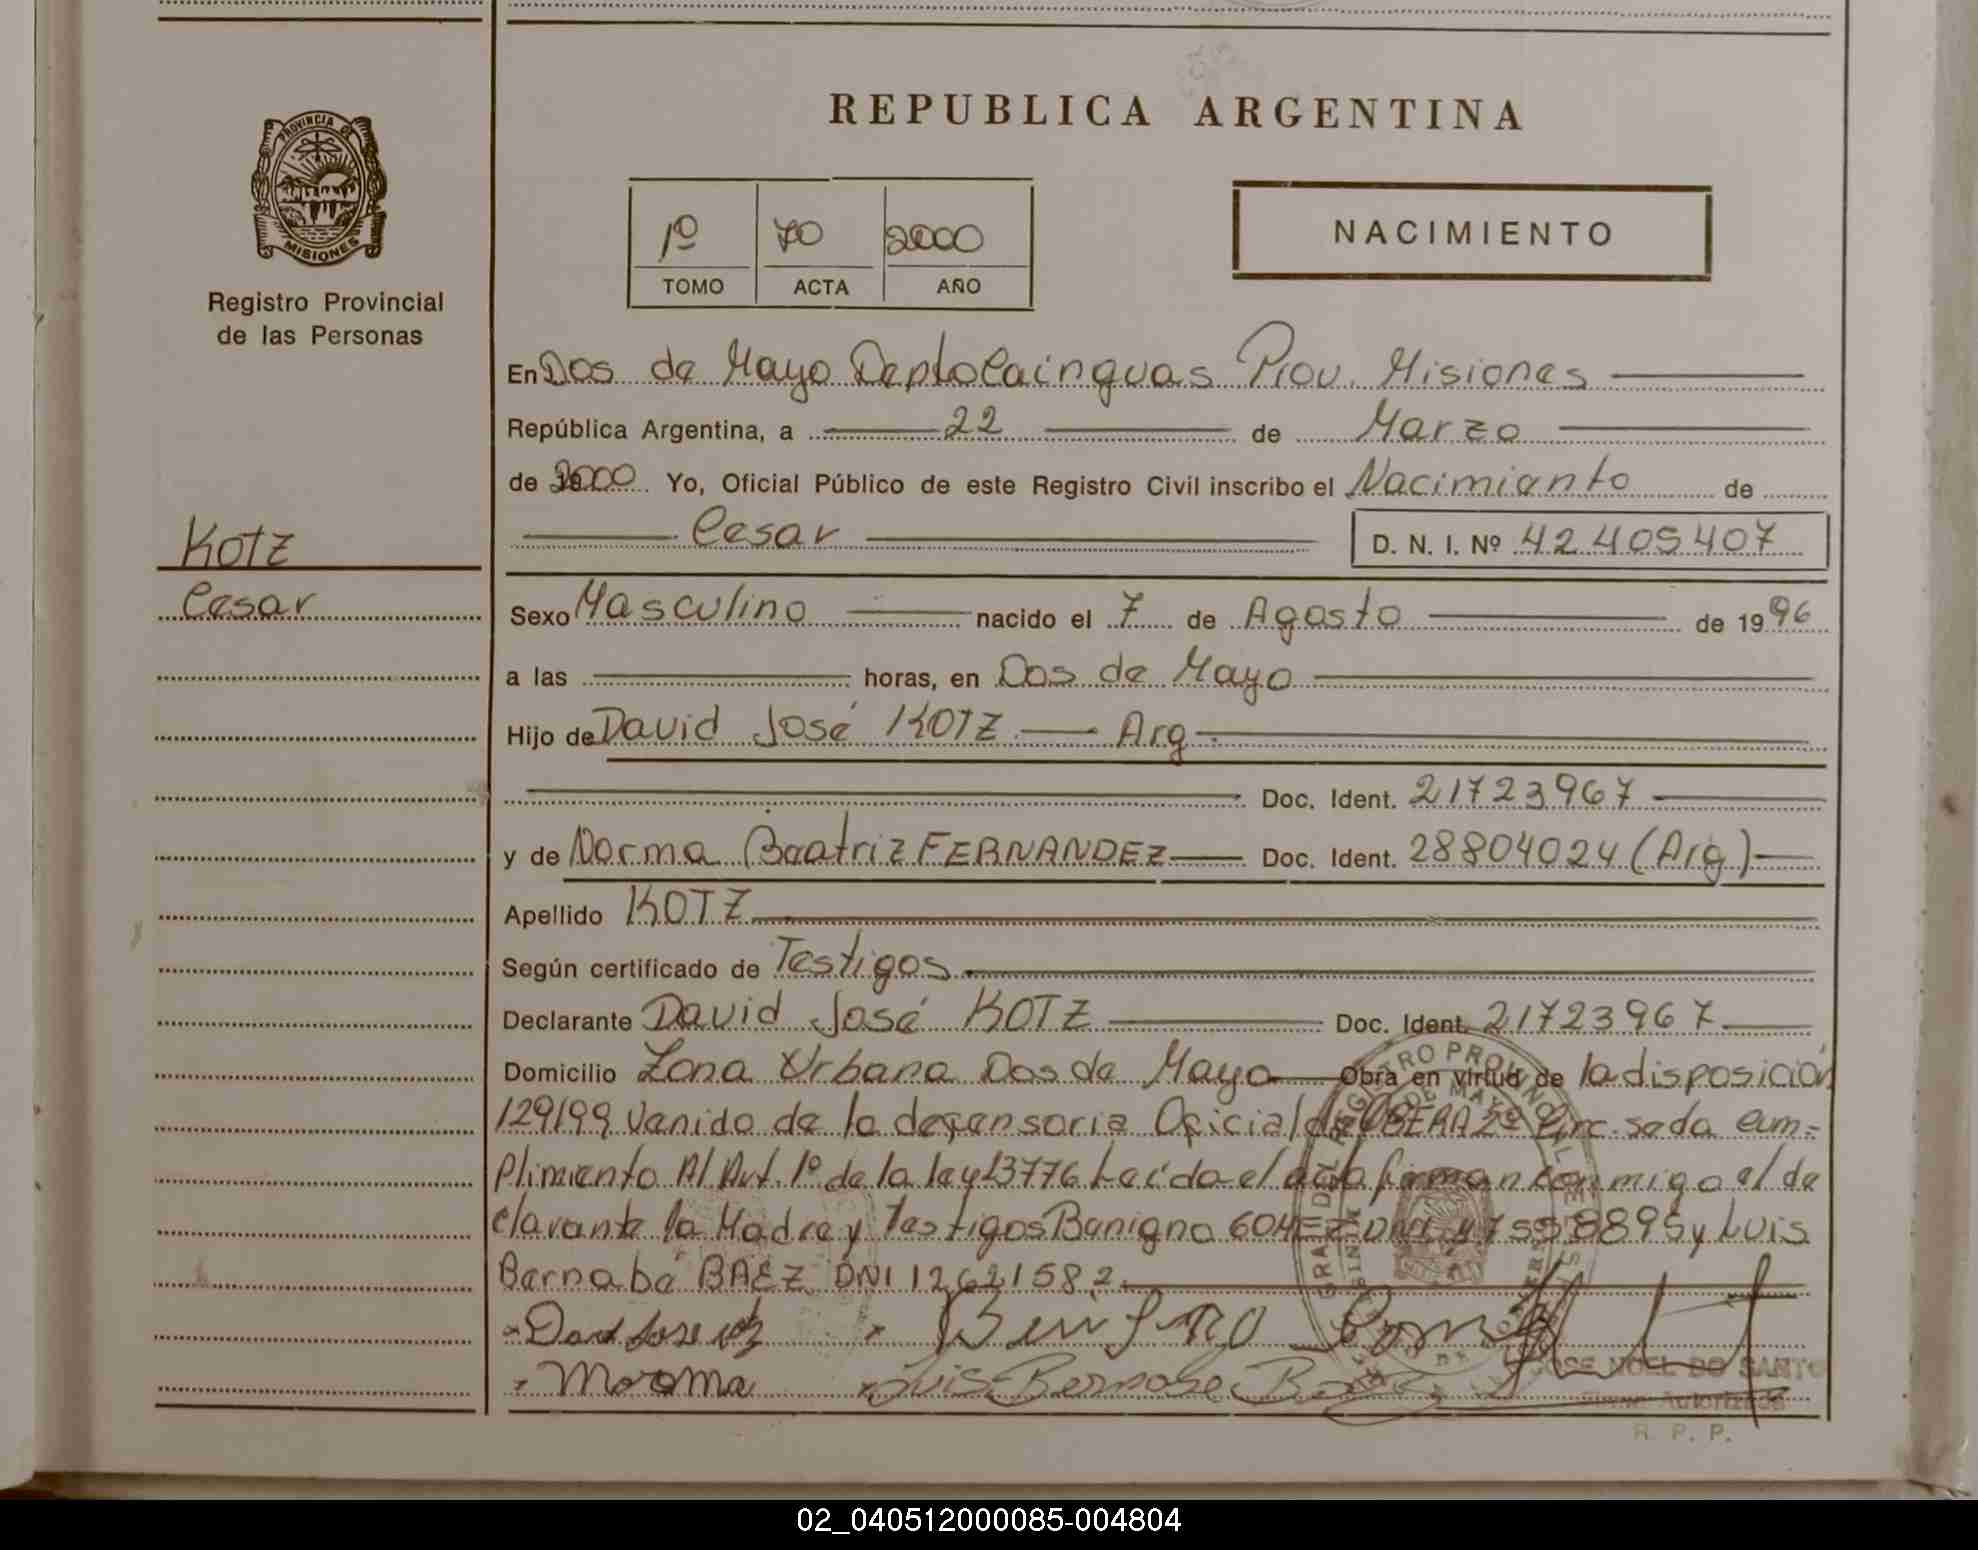 REPUBLICA ARGENTINA
PROVINCIA DE
MISIONES
Registro Provincial
de las Personas
1º 70 2000
TOMO ACTA AÑO
NACIMIENTO
En Dos de Mayo Depto Cainguas Prov. Misiones
República Argentina, a 22 de Marzo
de 2000 Yo, Oficial Público de este Registro Civil inscribo el Nacimiento de
Cesar D. N. I. Nº 42.405.407
KOTZ
Cesar
Sexo Masculino nacido el 7 de Agosto de 1996
a las horas, en Dos de Mayo
Hijo de David José KOTZ Arg.
Doc. Ident. 21723967
y de Norma Beatriz FERNANDEZ Doc. Ident. 28804024 (Arg)
Apellido KOTZ
Según certificado de Testigos
Declarante David José KOTZ Doc. Ident. 21723967
Domicilio Zona Urbana Dos de Mayo Obra en virtud de la disposición
129/99 Venido de la defensoria Oficial de OBERA 2º Circ. seda cum-
plimiento Al Art. 1º de la ley 13776 Leída el acta firman conmigo el de
clarante la Madre y Testigos Benigno GOMEZ DNI 8895 y Luis
Bernabé BAEZ DNI 12621582.
David Jose
Norma Luis Bernabe
JOSE NOEL DO SANTO
Firma Autorizada
R. P. P.
02_040512000085-004804